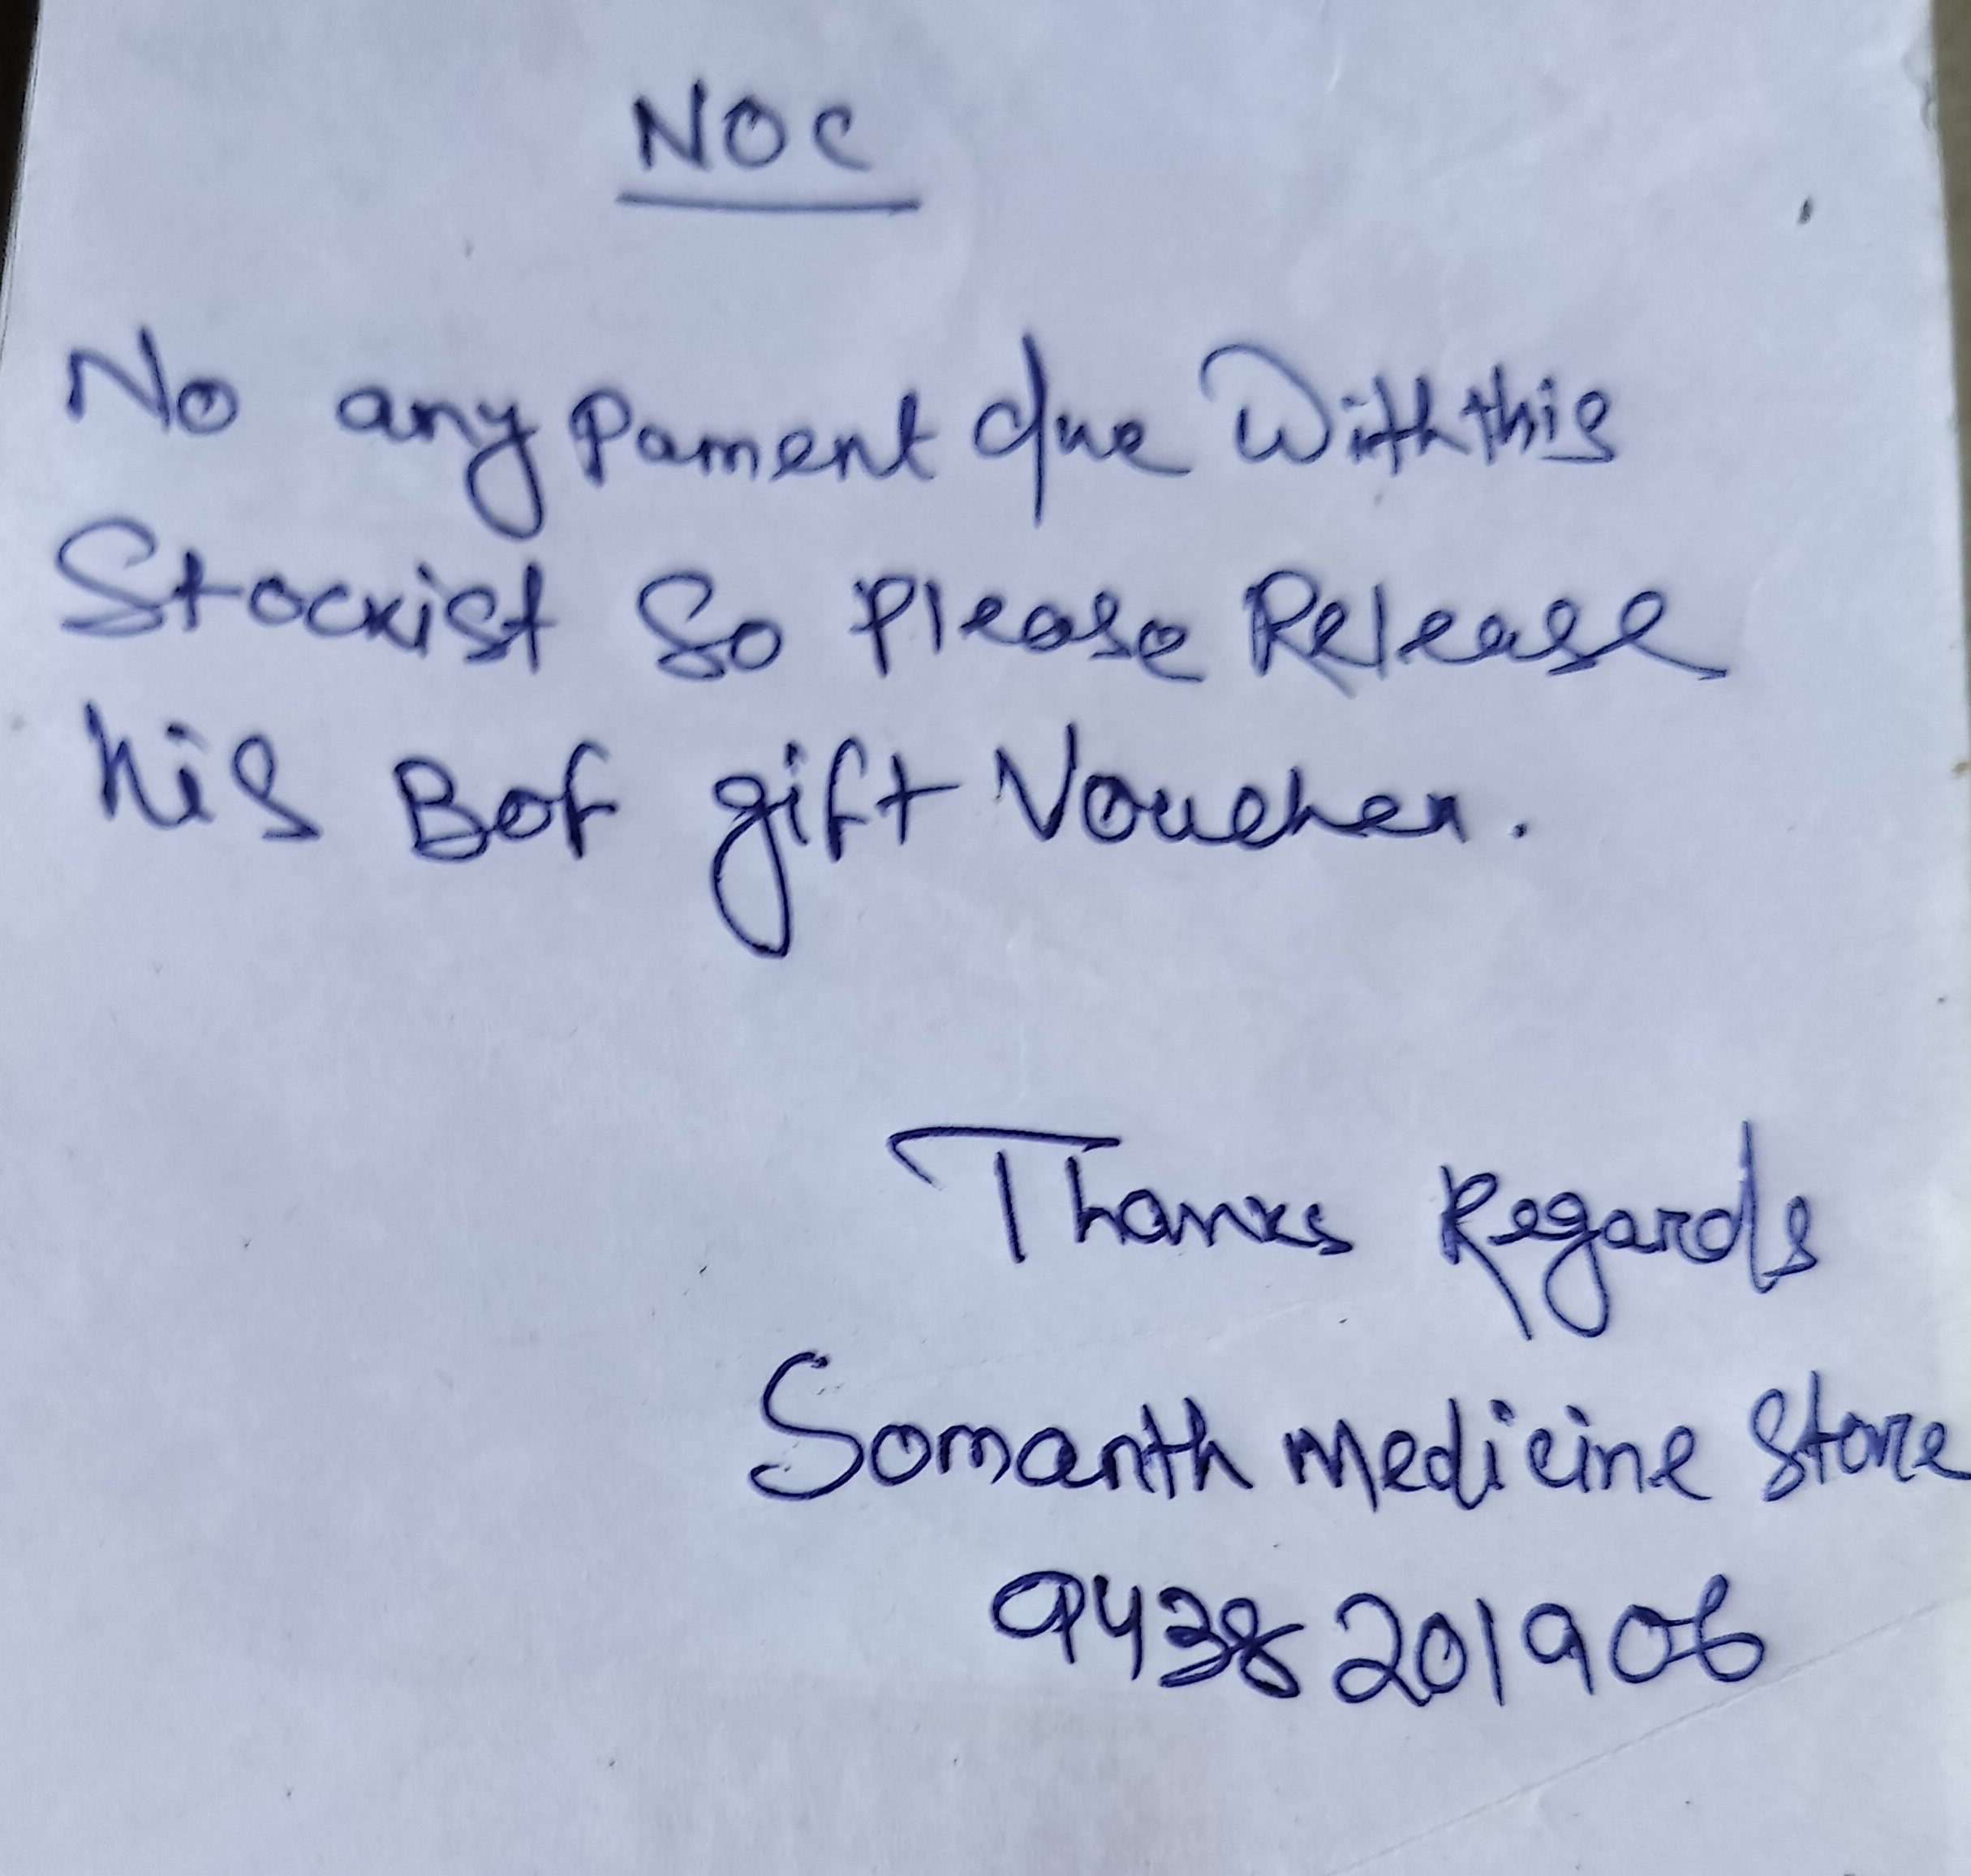 NOC
No any Pament due With this
Stockist So Please Release
his Bof gift Voucher.
Thanks Regards
Somanth Medicine Store
9438201906